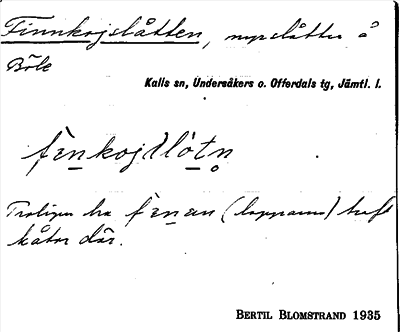 Finnkojslåtten, myrslåtter å
Böle
Kalls sn, Undersåkers o. Offerdals tg, Jämtl. l.
Troligen ha (lapparna) haft
kåtor där.
BERTIL BLOMSTRAND 1935